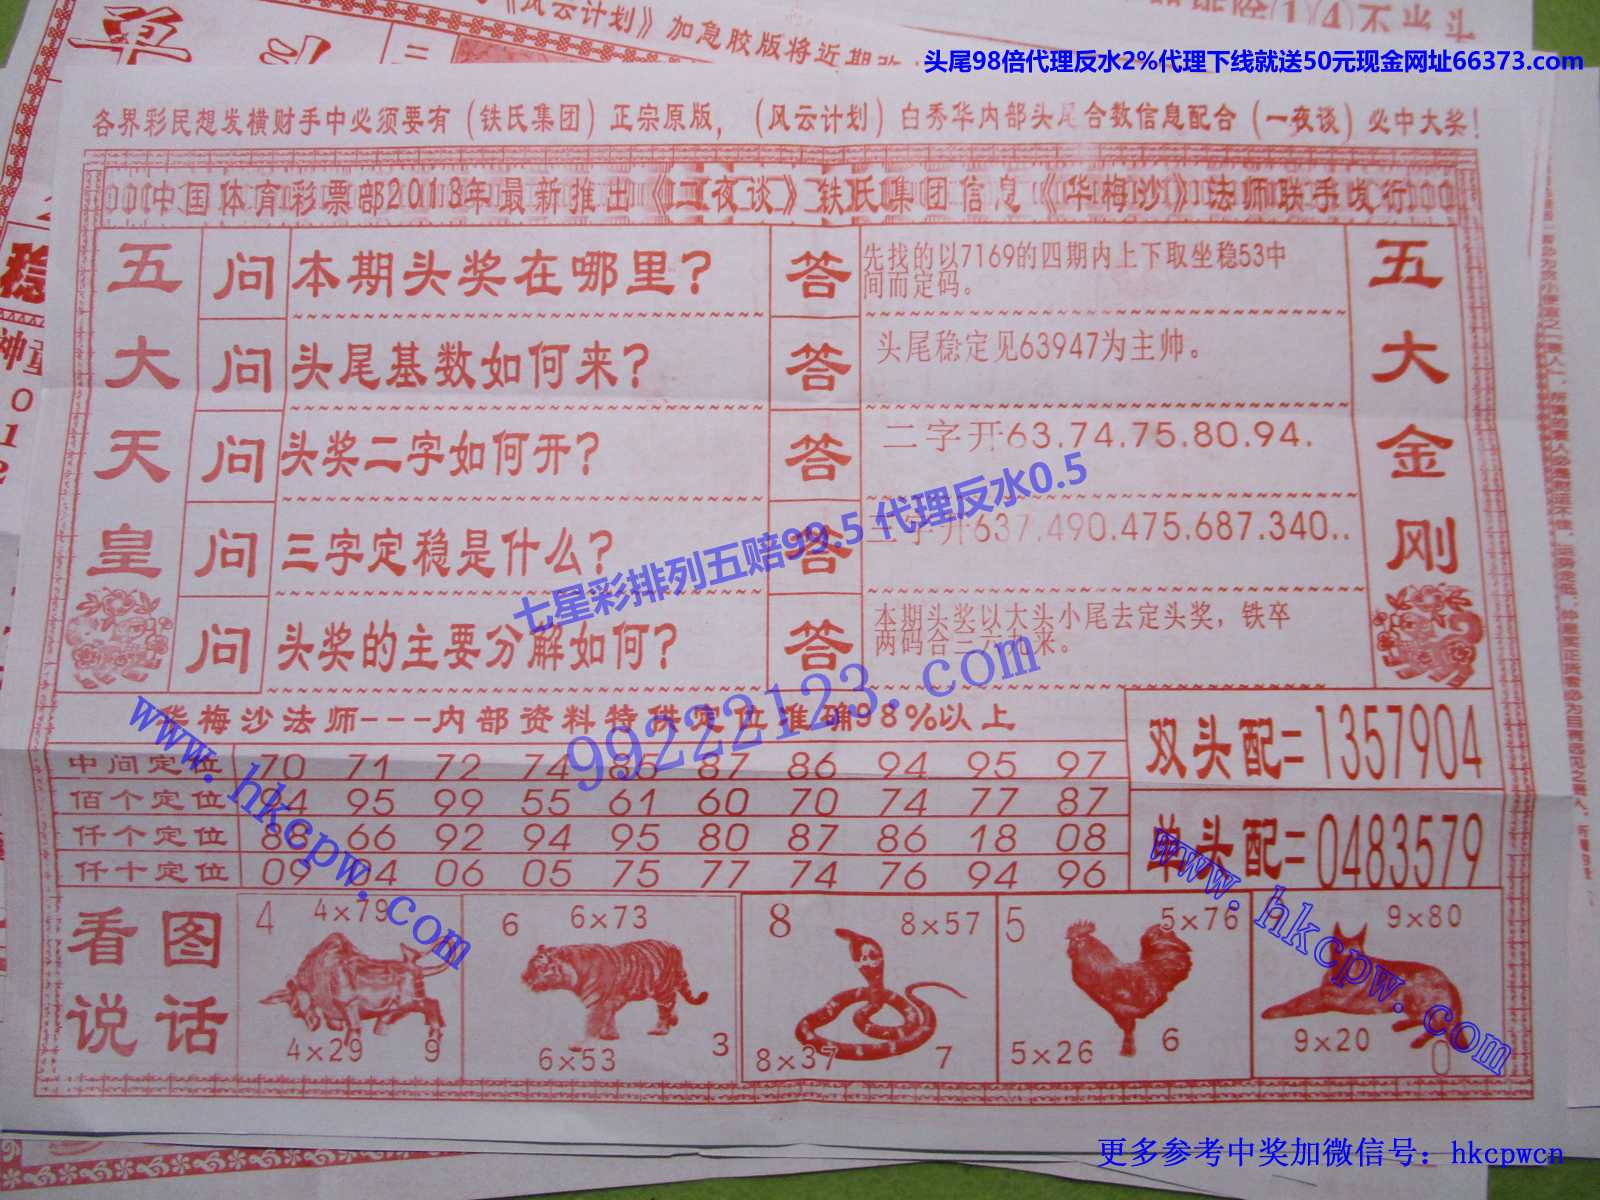 《风云计划》加急胶版将近期改
头尾98倍代理反水2%代理下线就送50元现金网址66373.com
各界彩民想发横财手中必须要有（铁氏集团）正宗原版，（风云计划）白秀华内部头尾合数信息配合（一夜谈）必中大奖！
中国体育彩票部2013年最新推出《一夜谈》铁氏集团信息《华梅沙》法师联手发行
五大天皇
五大金刚
问 本期头奖在哪里？ 答 先找的以7169的四期内上下取坐稳53中
间而定码。
问 头尾基数如何来？ 答 头尾稳定见63947为主帅。
问 头奖二字如何开？ 答 二字开63.74.75.80.94.
问 三字定稳是什么？ 答 三字开637.490.475.687.340..
问 头奖的主要分解如何？ 答 本期头奖以大头小尾去定头奖，铁卒
两码合三六九来。
七星彩排列五赔99.5 代理反水0.5
99222123.com
华梅沙法师---内部资料特供定位准确98%以上
中间定位 70 71 72 74 85 87 86 94 95 97
佰个定位 94 95 99 55 61 60 70 74 77 87
仟个定位 88 66 92 94 95 80 87 86 18 08
仟十定位 09 04 06 05 75 77 74 76 94 96
双头配=1357904
单头配=0483579
www.hkcpw.com
www.hkcpw.com
看图说话
4 4×79
4×29 9
6 6×73
6×53 3
8 8×57
8×37 7
5 5×76
5×26 6
9×80
9×20 0
更多参考中奖加微信号：hkcpwcn